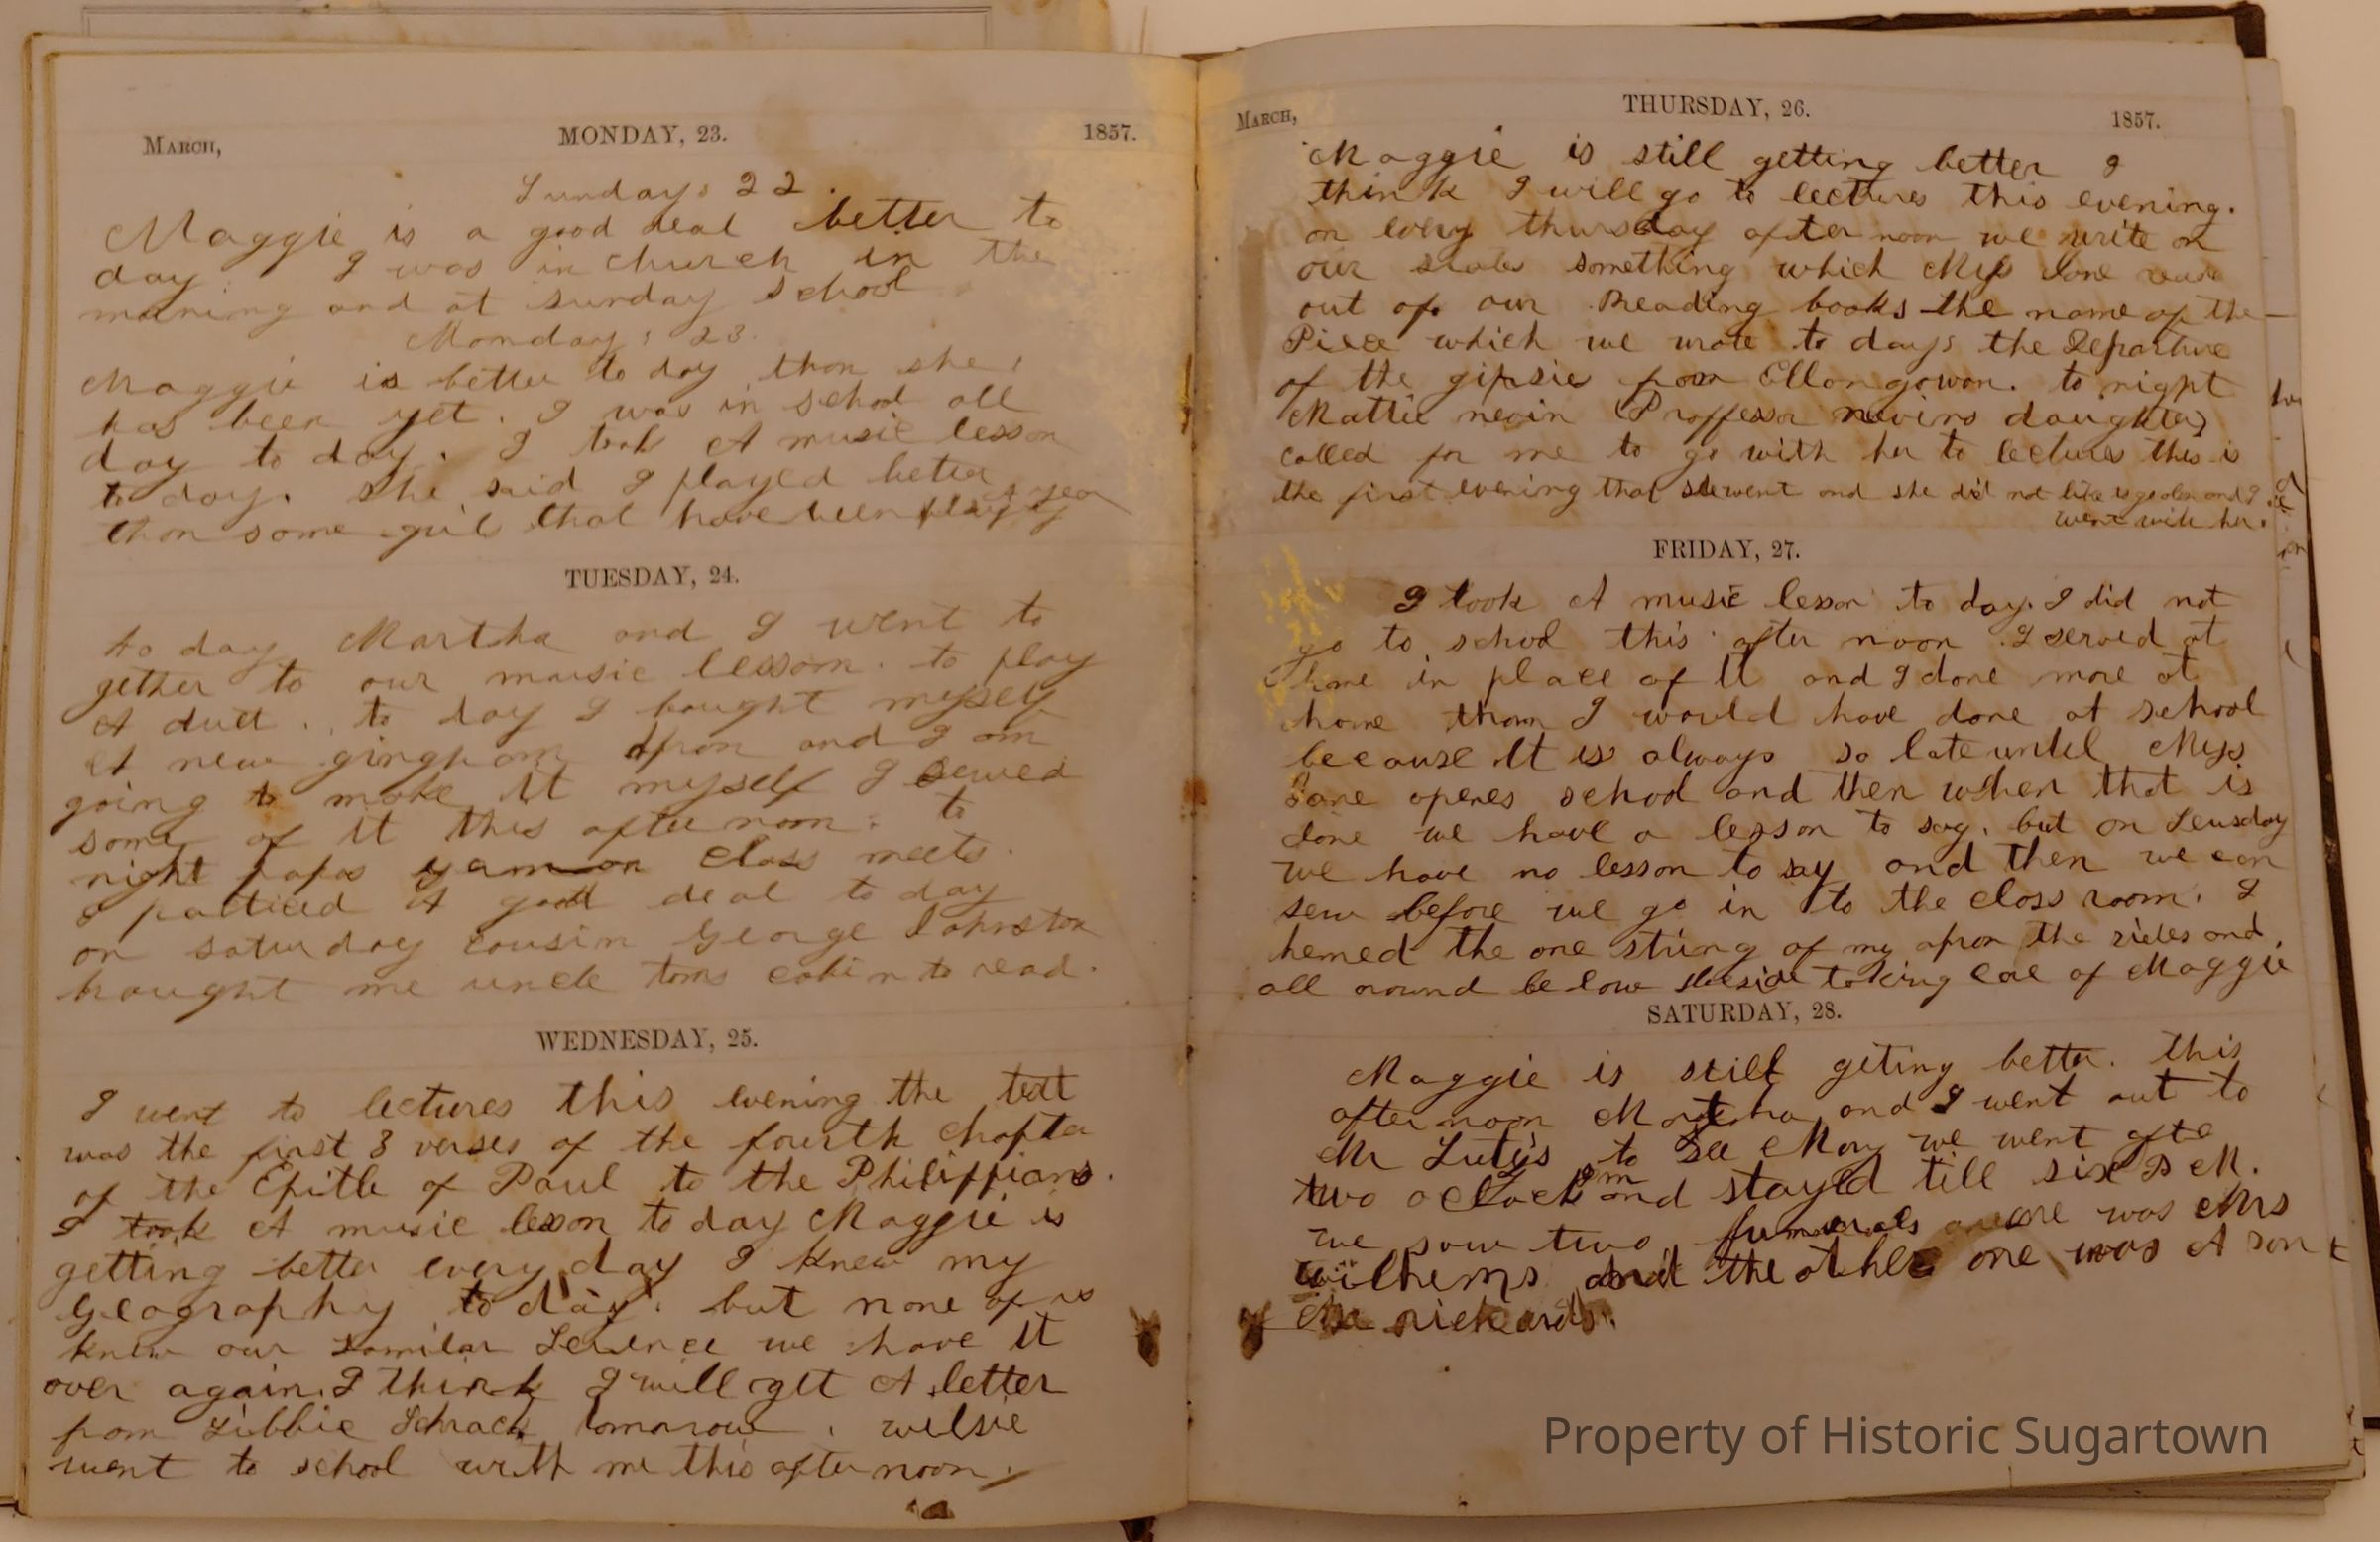 March,
MONDAY, 23.
1857.
Sunday: 22.
Maggie is a good deal better to
day I was in church in the
morning and at sunday school
Monday: 23.
Maggie is better to day than she
has been yet. I was in school all
day to day. I took A music lesson
to day. She said I played beter
than some girls that have been play a year
TUESDAY, 24.
to day Martha and I went to
gether to our music lesson. to play
A duet. to day I bought myself
A new gingham apron and I am
going to make it myself I sewed
some of it this after noon. to
night papas class meets.
I practiced A good deal to day
on saturday cousin George Johnston
bought me uncle toms cabin to read.
WEDNESDAY, 25.
I went to lectures this evening the text
was the first 8 verses of the fourth chapter
of the Epitle of Paul to the Philippians.
I took A music lesson to day Maggie is
getting better every day I knew my
Geography to day. but none of us
knew our Familar Science we have it
over again. I think I will get A letter
from Libbie Schrack tomorow. wilsie
went to school with me this after noon.
March,
THURSDAY, 26.
1857.
Maggie is still getting better I
think I will go to lectures this evening.
on every thursday after noon we write on
our slates something which Miss Jane reads
out of our Reading books the name of the
Piece which we wrote to day: the Departure
of the gipsies from Ellangowan. to night
Mattie nevin (Proffessor nevins daughter)
called for me to go with her to lectures this is
the first evening that she went and she did not like to go alone and I
went with her.
FRIDAY, 27.
I took A music lesson to day. I did not
go to school this after noon. I sewed at
home in place of It and I done more at
home than I would have done at school
because It is always so late until Miss
Jane openes school and then when that is
done we have a lesson to say. but on Teusday
we have no lesson to say and then we can
sew before we go in to the class room. I
hemed the one string of my apron the sides and
all around below beside taking care of Maggie
SATURDAY, 28.
Maggie is still geting better. this
after noon Martha and I went out to
Mr Luty's to See Mary we went afte
two oclock Pm and stayed till six P M.
we saw two funerals one was Mrs
wilhems and the other one was A son
Mr rickards.
Property of Historic Sugartown